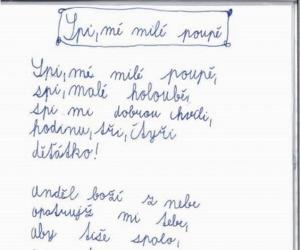 Spi, mé milé poupě
Spi, mé milé poupě,
spi, malé holoubě,
spi mi dobrou chvíli,
hodinu, tři, čtyři
děťátko!
Anděl boží z nebe
opatrujž mi tebe,
aby tiše spalo,